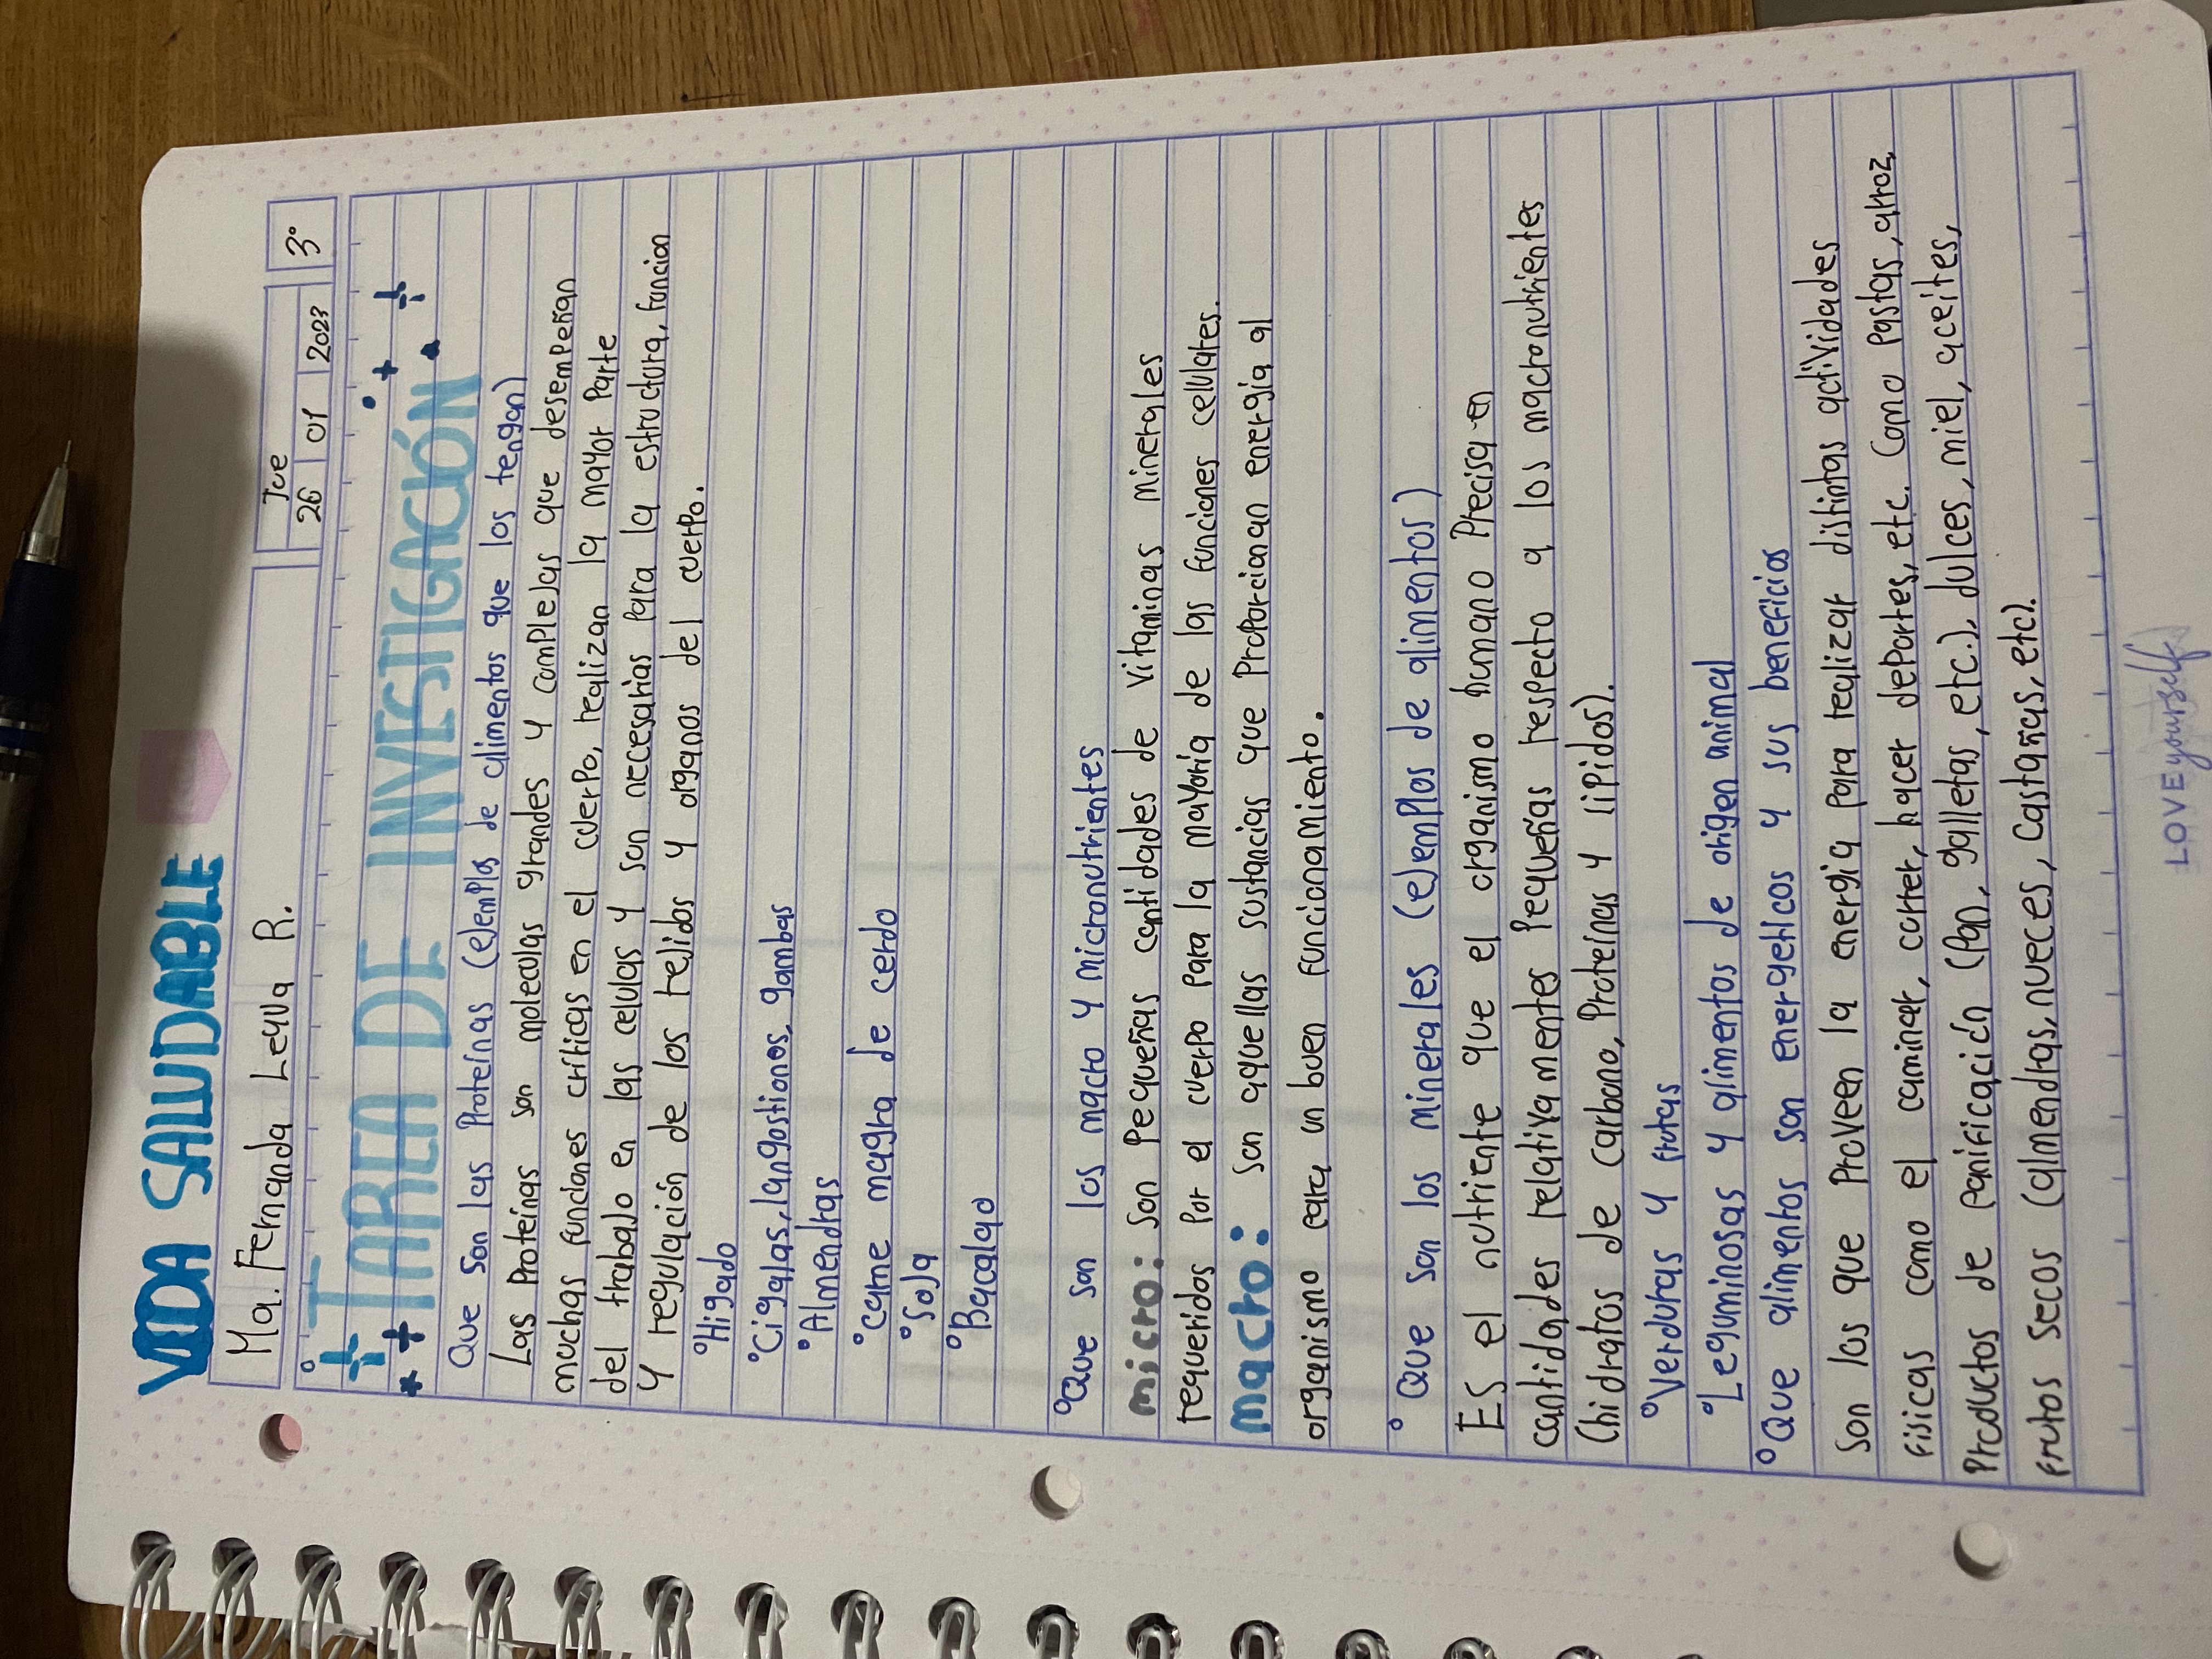 VIDA SALUDABLE
Jue
Ma. Fernanda Leyva R.
26 01 2023
3°
TAREA DE INVESTIGACIÓN
Que son las Proteínas (ejemplos de alimentos que los tengan)
Las Proteínas son moleculas grandes y complejas que desempeñan
muchas funciones críticas en el cuerpo, realizan la mayor Parte
del trabajo en las celulas y son necesarias Para la estructura, funcion
y regulación de los tejidos y organos del cuerpo.
°Higado
°Cigalas, langostionos, gambas
°Almendras
°carne magra de cerdo
°Soja
°Bacalao
°Que son los macro y micronutrientes
micro: Son Pequeñas cantidades de vitaminas minerales
requeridos Por el cuerpo Para la mayoría de las funciones cellulares.
macro: son aquellas sustancias que Proporcionan energía al
organismo para un buen funcionamiento.
° Que son los minerales (ejemplos de alimentos)
ES el nutriente que el organismo humano Precisa en
cantidades relativamentes Pequeñas respecto a los macronutrientes
(hidratos de carbono, Proteínas y lipidos).
°Verduras y frutas
°Leguminosas y alimentos de origen animal
°Que alimentos son energeticos y sus beneficios
Son los que Proveen la energia Para realizar distintas actividades
fisicas como el caminar, correr, hacer deportes, etc. Como Pastas, arroz,
Productos de Panificación (Pan, galletas, etc.), dulces, miel, aceites,
frutos secos (almendras, nueces, castañas, etc).
LOVE yourself